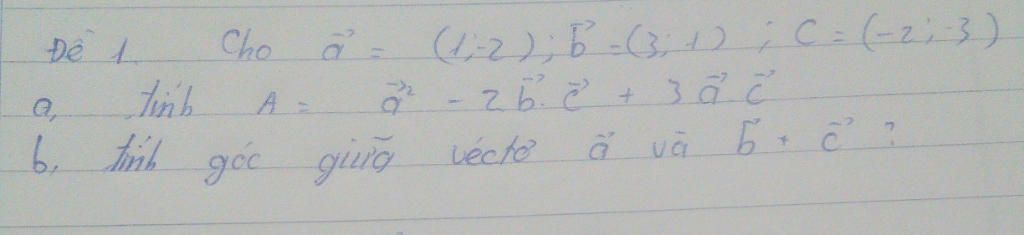 Đề 1. Cho a⃗ = (1;-2); b⃗ = (3;1); C = (-2;-3)
a, tính A = a⃗² - 2b⃗.c⃗ + 3a⃗.c⃗
b, tính góc giữa véctơ a⃗ và b⃗ + c⃗ ?